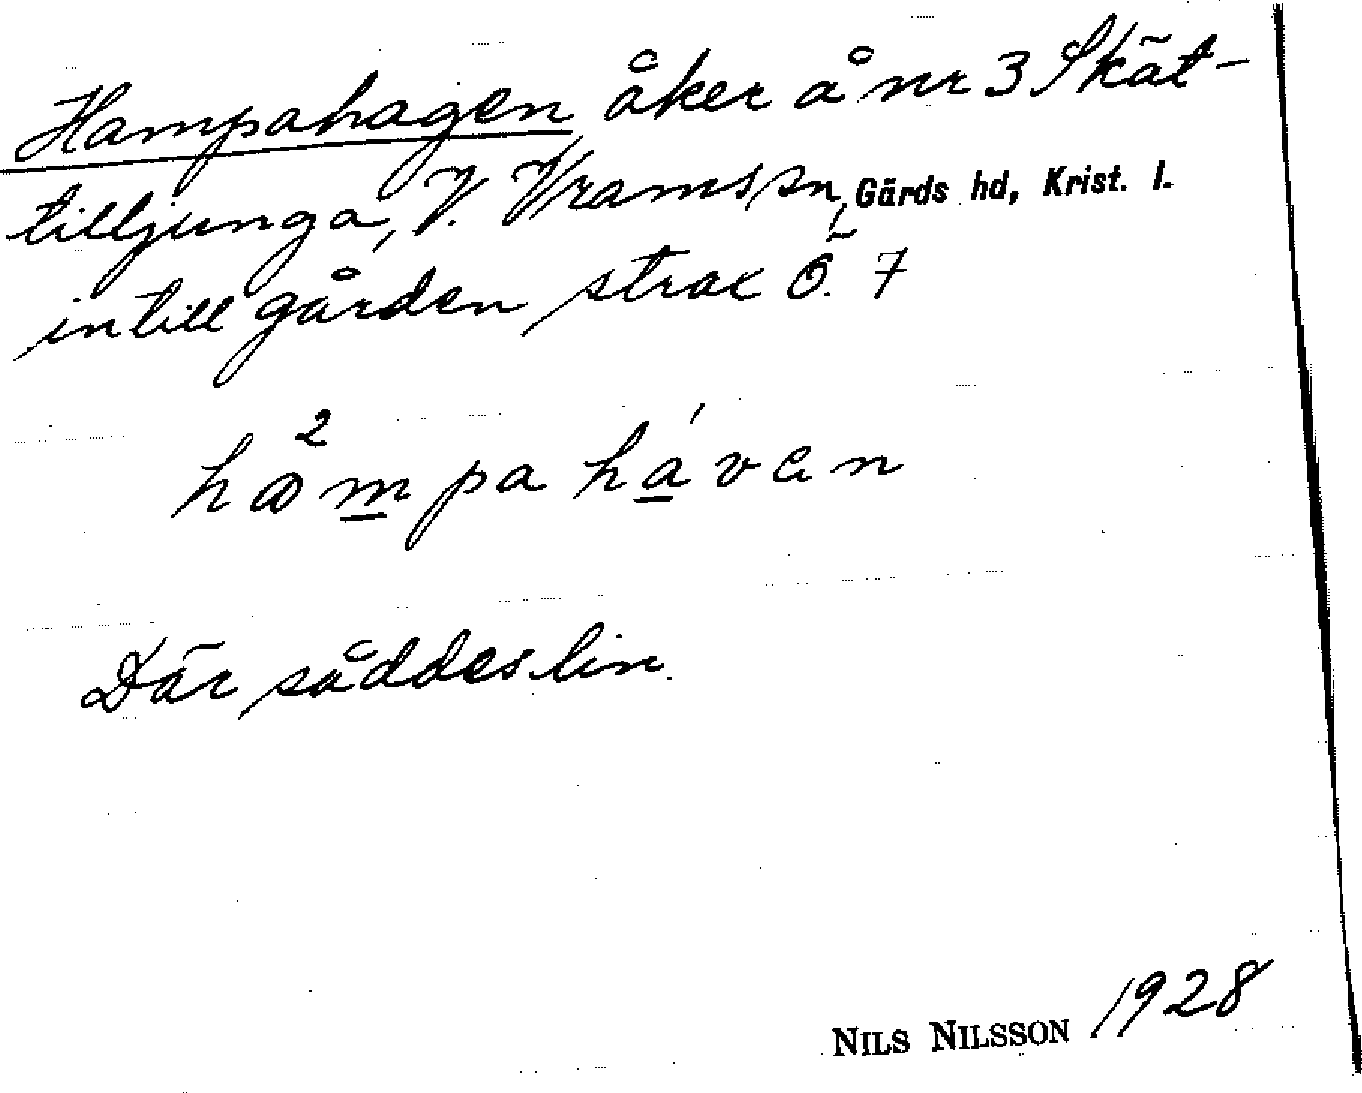 Hampahagen åker å nr 3 Skät-
tilljunga, V. Vrams sn, Gärds hd, Krist. l.
intill gården, strax Ö. 7
2
hampa háven
Där såddes lin.
NILS NILSSON 1928